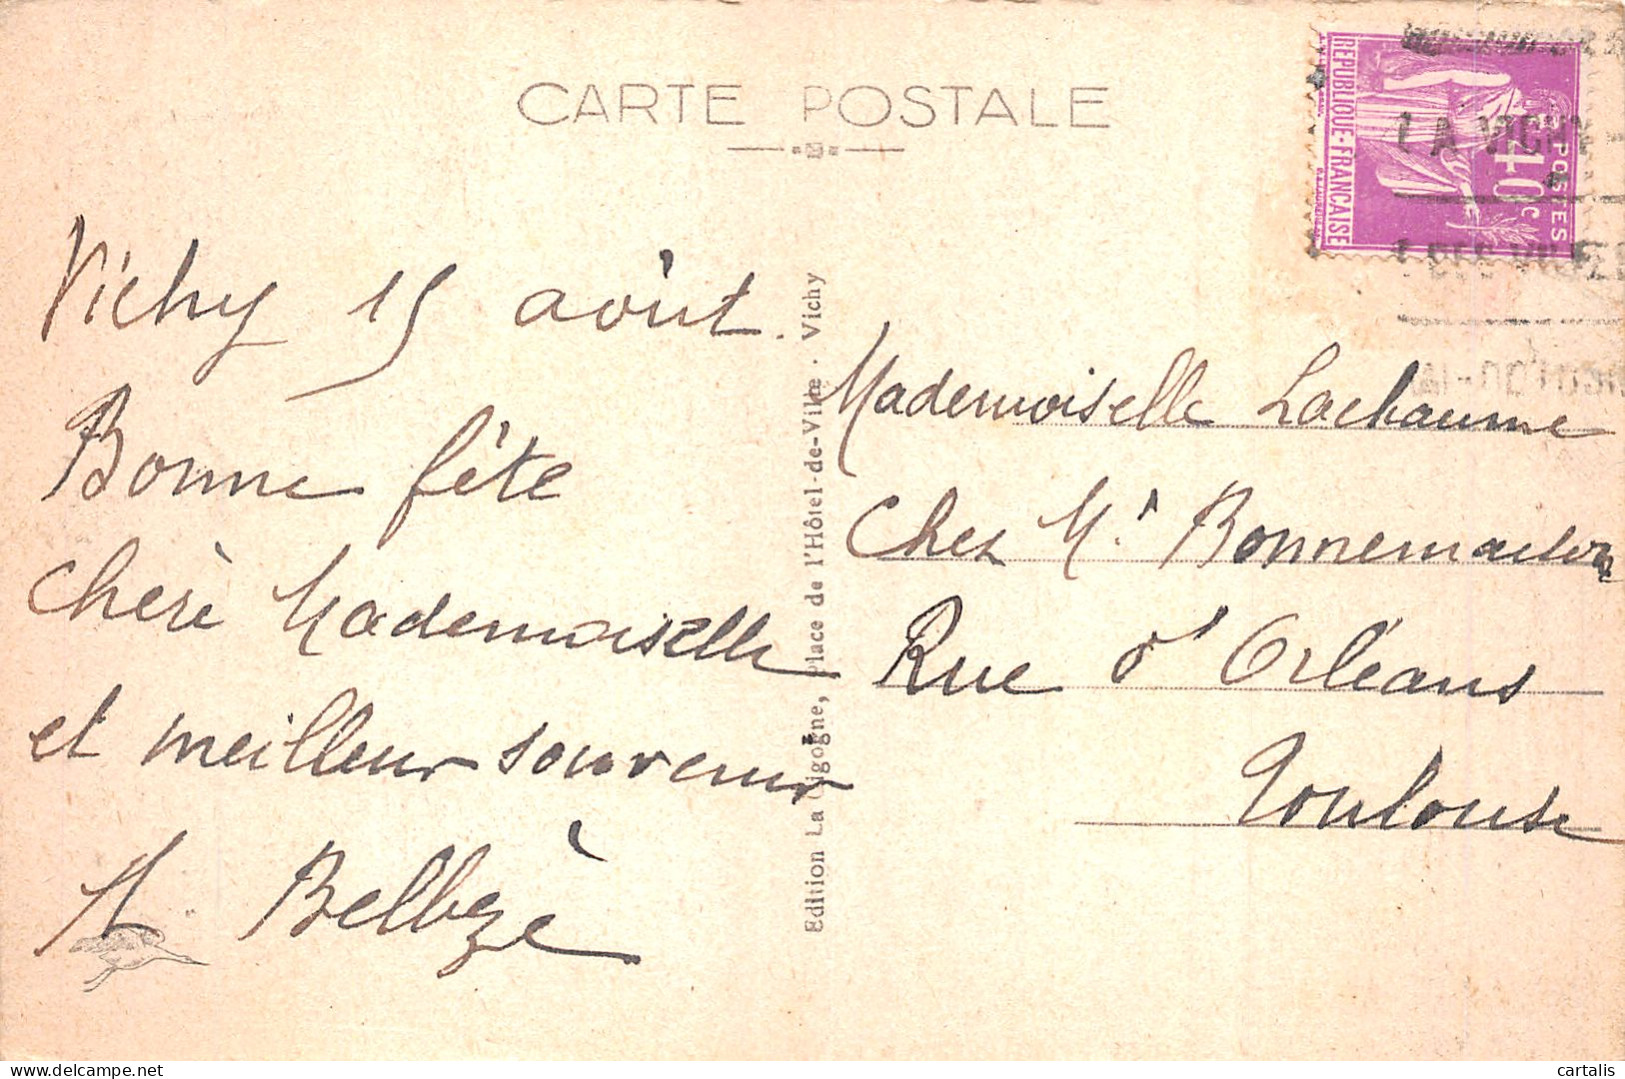 CARTE POSTALE
RÉPUBLIQUE-FRANÇAISE
POSTES
40c
LA VICHY-
DES VILLES
Vichy 15 août.
Bonne fête
chère Mademoiselle
et meilleur souvenir
M. Belbezè
Edition La Cigogne, Place de l'Hôtel-de-Ville · Vichy
Mademoiselle Lachaume
Chez Mr Bonnemaison
Rue d'Orléans
Toulouse
delcampe.net
cartalis